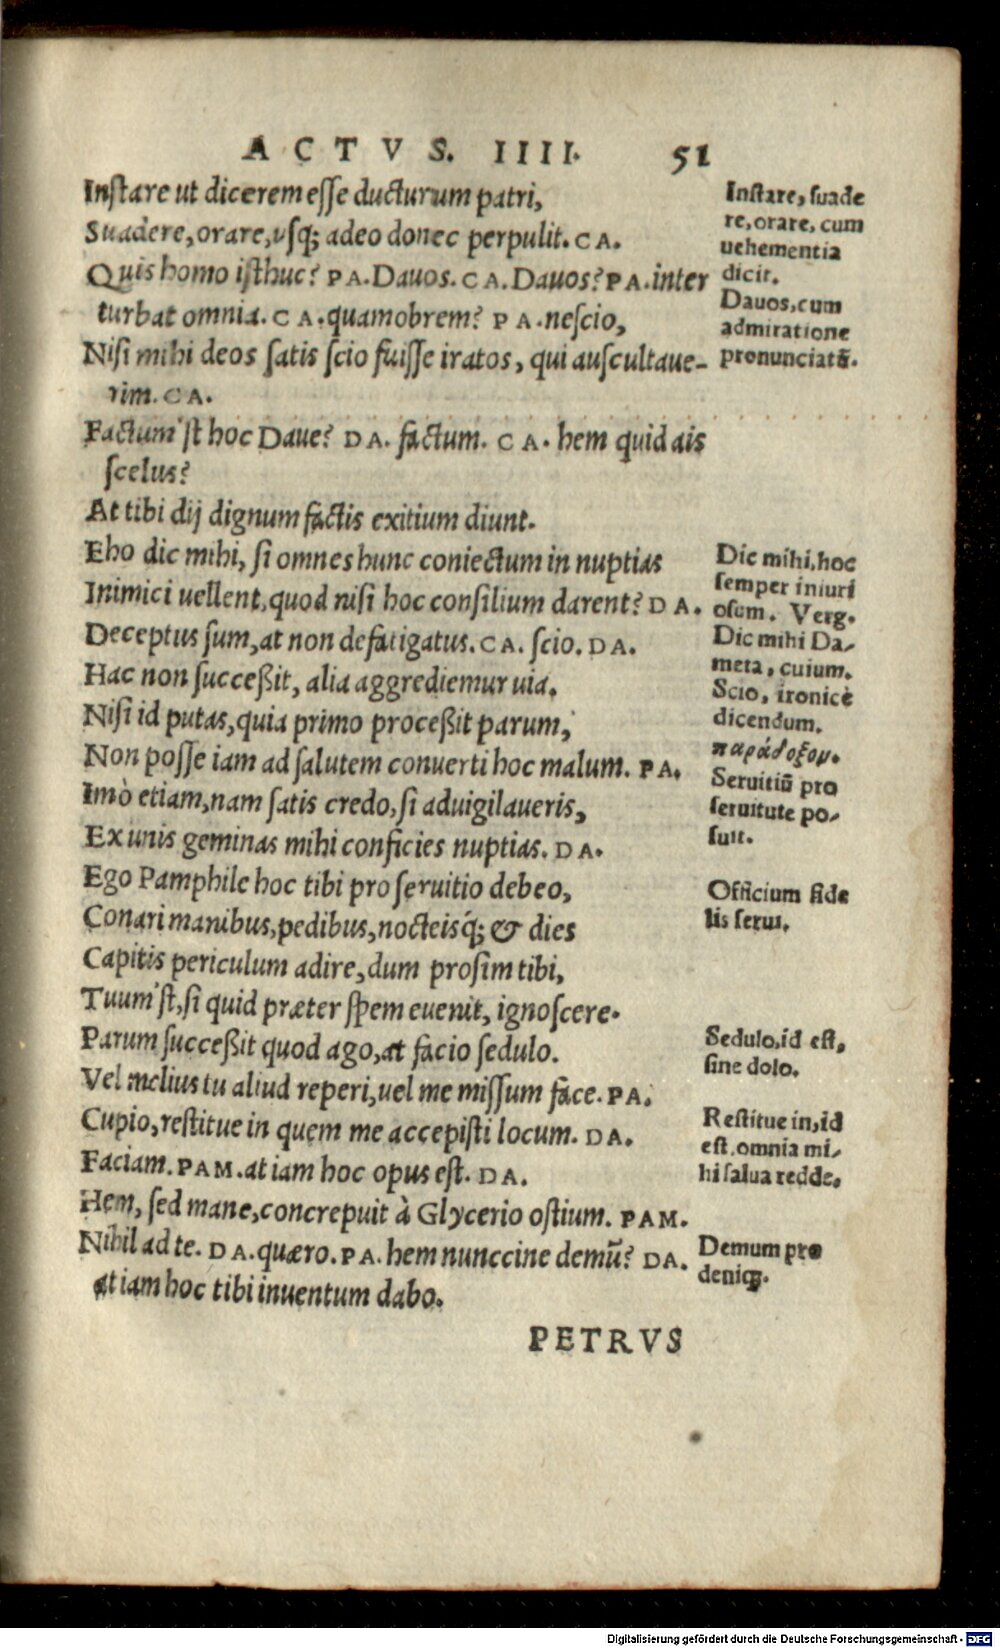 ACTVS. IIII. 51
Instare ut dicerem esse ducturum patri,
Suadere, orare, usq; adeo donec perpulit. CA.
Quis homo isthuc? PA. Dauos. CA. Dauos? PA. inter
turbat omnia. CA. quamobrem? PA. nescio,
Nisi mihi deos satis scio fuisse iratos, qui auscultaue-
rim. CA.
Factum'st hoc Daue? DA. factum. CA. hem quid ais
scelus?
At tibi dij dignum factis exitium diunt.
Eho dic mihi, si omnes hunc coniectum in nuptias
Inimici uellent, quod nisi hoc consilium darent? DA.
Deceptus sum, at non defatigatus. CA. scio. DA.
Hac non succeßit, alia aggrediemur uia.
Nisi id putas, quia primo proceßit parum,
Non posse iam ad salutem conuerti hoc malum. PA.
Imò etiam, nam satis credo, si aduigilaueris,
Ex unis geminas mihi conficies nuptias. DA.
Ego Pamphile hoc tibi pro seruitio debeo,
Conari manibus, pedibus, nocteisq́; & dies
Capitis periculum adire, dum prosim tibi,
Tuum'st, si quid præter spem euenit, ignoscere.
Parum succeßit quod ago, at facio sedulo.
Vel melius tu aliud reperi, uel me missum face. PA.
Cupio, restitue in quem me accepisti locum. DA.
Faciam. PAM. at iam hoc opus est. DA.
Hem, sed mane, concrepuit à Glycerio ostium. PAM.
Nihil ad te. DA. quæro. PA. hem nunccine demũ? DA.
at iam hoc tibi inuentum dabo.
PETRVS
Instare, suade
re, orare, cum
uehementia
dicit.
Dauos, cum
admiratione
pronunciatũ.
Dic mihi, hoc
semper iniuri
osum. Verg.
Dic mihi Da-
meta, cuium.
Scio, ironicè
dicendum.
παράδοξον.
Seruitiũ pro
seruitute po-
suit.
Officium fide
lis serui.
Sedulo, id est,
sine dolo.
Restitue in, id
est, omnia mi-
hi salua redde.
Demum pro
deniq;.
Digitalisierung gefördert durch die Deutsche Forschungsgemeinschaft - DFG